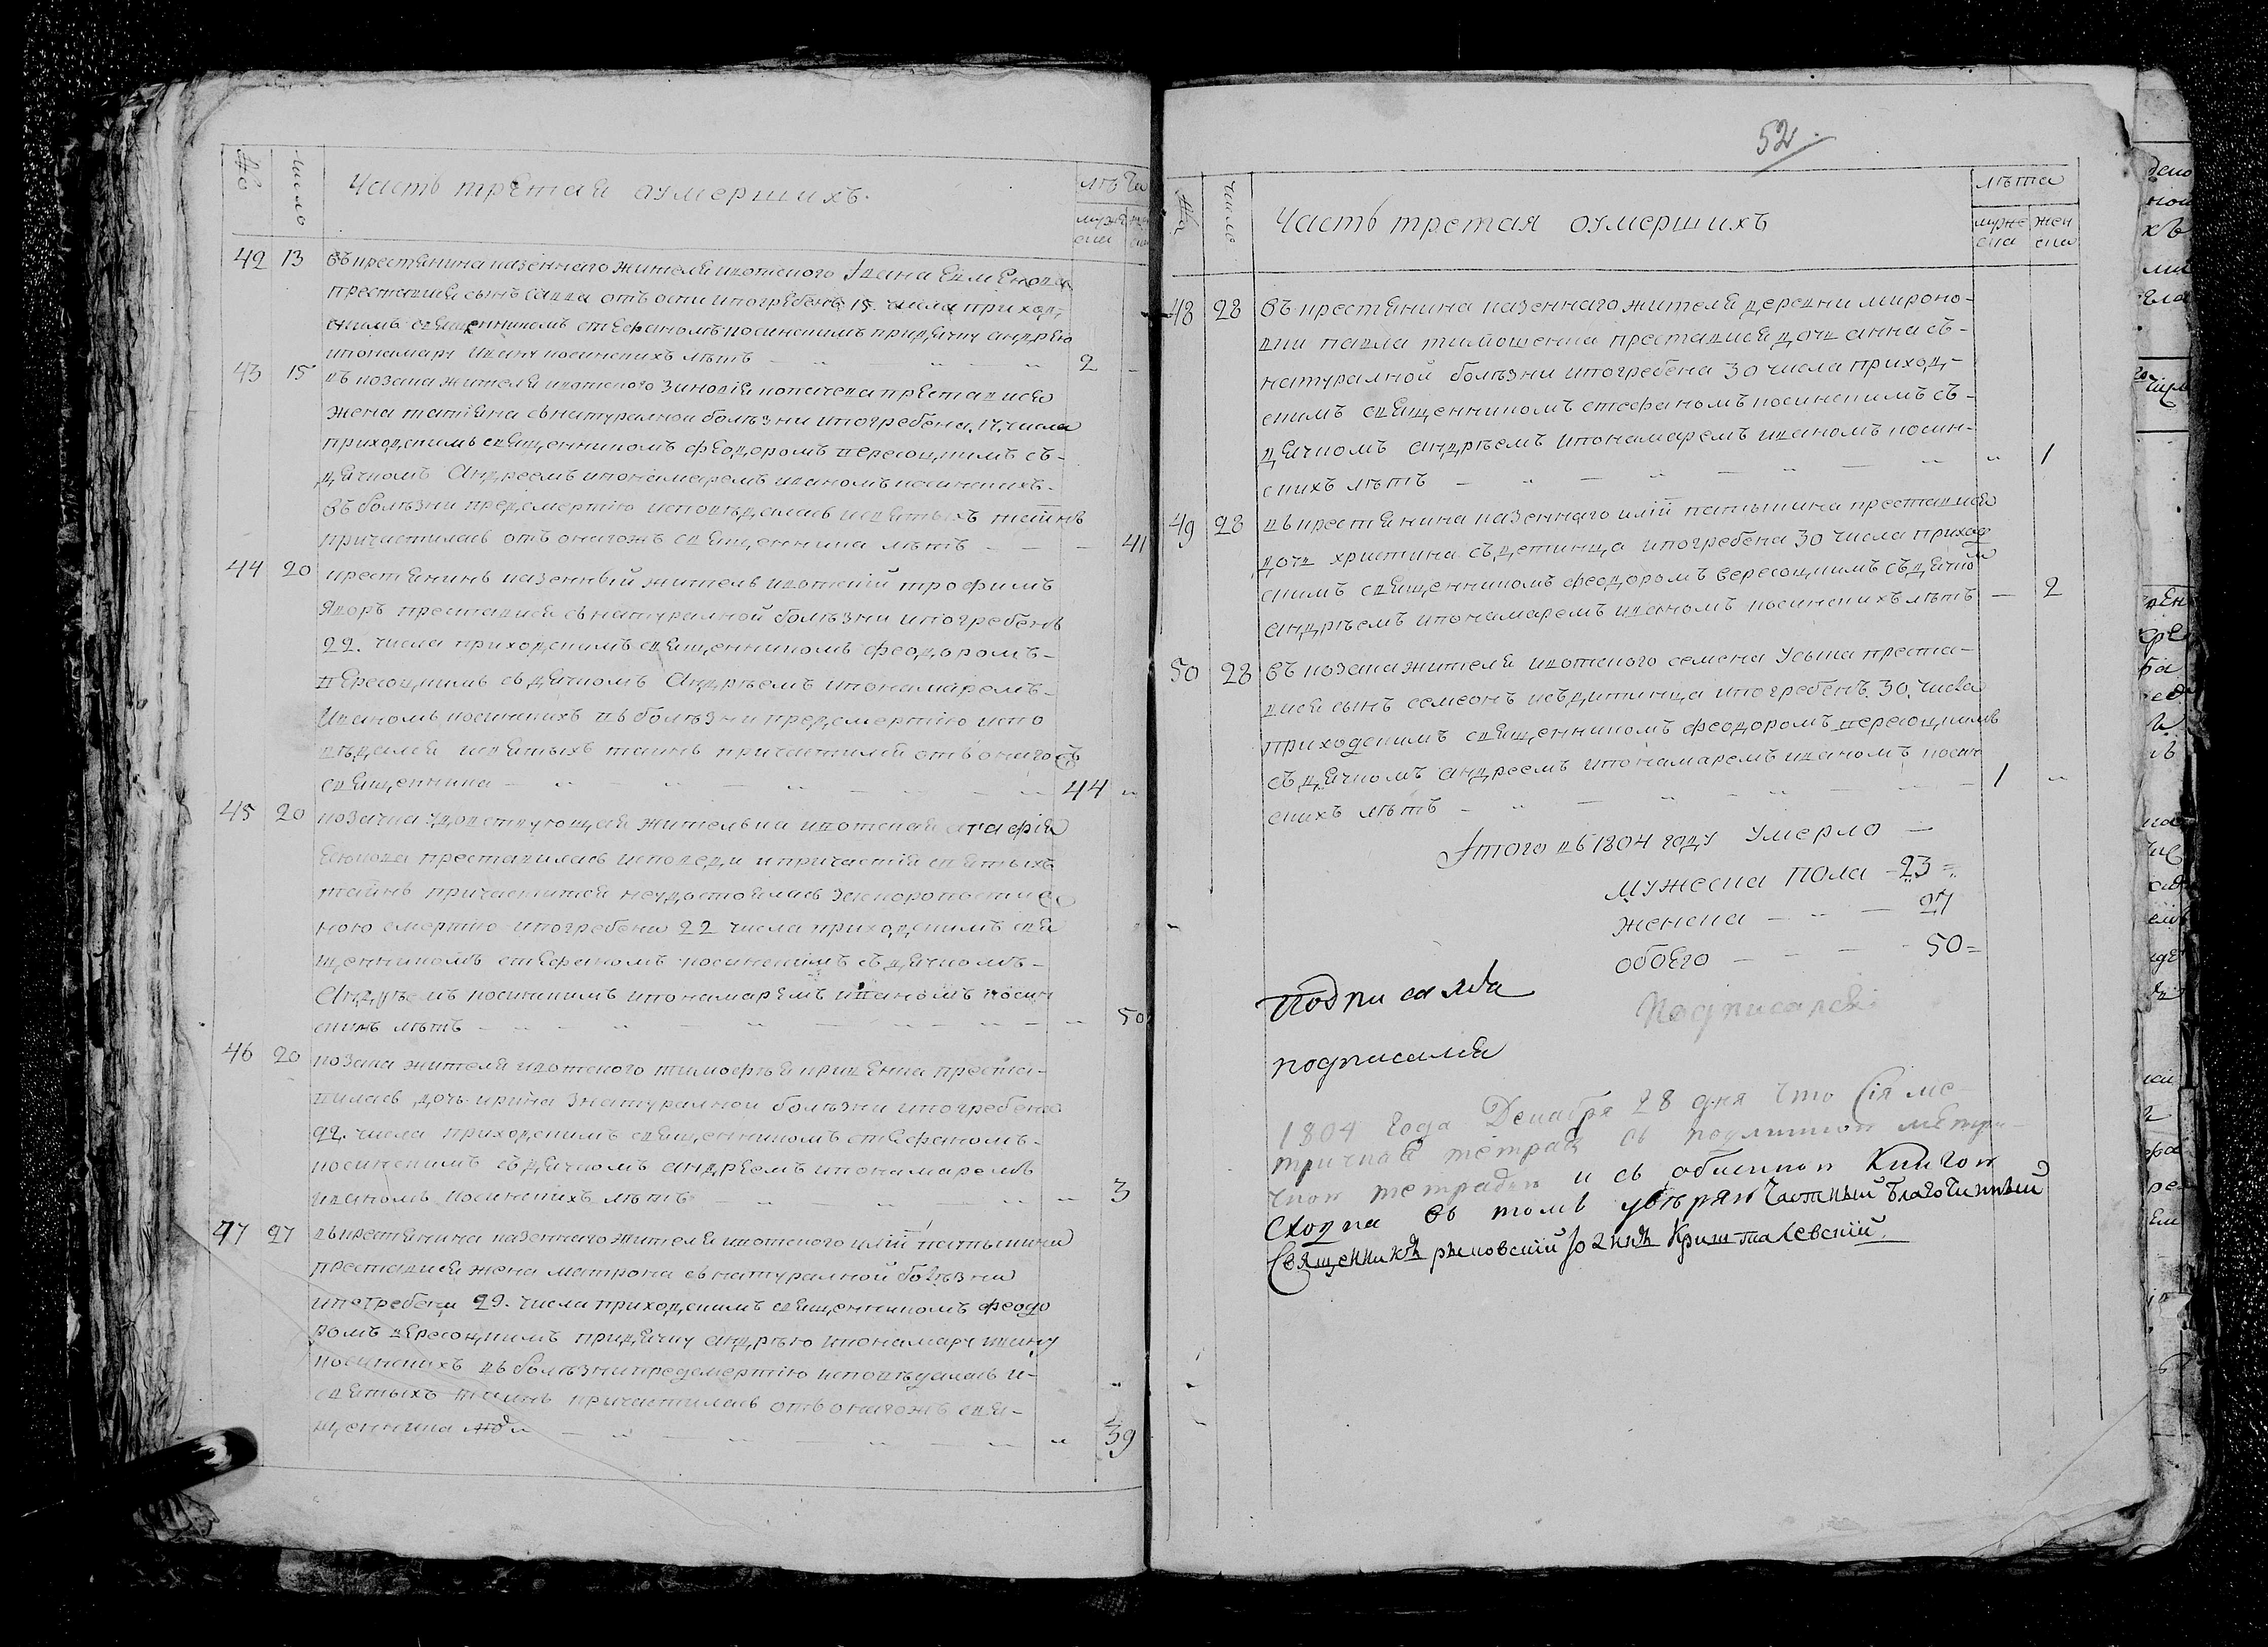 № число Часть третая оумершихъ. лѣта
муже ска
42 13 въ крестянина казеннаго жителя идотского Івана
преставися сынъ савва отъ оспи и погребенъ 15 числа приход,
скимъ священникомъ стефаномъ косинскимъ при дячку андрею
и понамару ивану косинскихъ лѣтъ 2
43 15 въ козака жителя идотского зиновія копачева преставися
жена татіяна съ натуралной болѣзни и погребена 17. числа
приход,скимъ священникомъ феодоромъ вересоцкимъ съ-
дячкомъ Андреемъ и понамаремъ иваномъ косинскихъ-
въ болѣзни пред,смертію исповѣдалась и святыхъ таинъ
причастилась отъ онагожъ священника лѣтъ 41
44 20 крестянинъ казенный житель идотскій трофимъ
Яворъ преставися съ натуралной болѣзни и погребенъ
22. числа приход,скимъ священникомъ феодоромъ-
Вересоцкимъ съ дячкомъ Андрѣемъ и понамаремъ-
Иваномъ косинскихъ въ болѣзни пред,смертію испо
вѣдался и святыхъ таинъ причастился отъ онагожъ
священника 44
45 20 козачка вдовствующая жителька идотская агафія
преставилась исповеди и причастія святыхъ
таинъ причаститися неудостоилась за скоропостиж
ною смертію и погребена 22 числа приход,скимъ свя
щенникомъ стефаномъ косинскимъ съ дячкомъ-
Андрѣемъ косинскимъ и понамаремъ иваномъ косин
скимъ лѣтъ 50
46 20 козака жителя идотского тимофѣя кривенка преста-
вилась дочь ирина з натуралной болѣзни и погребена
22. числа приход,скимъ священникомъ стефаномъ-
косинскимъ съ дячкомъ андреемъ и понамаремъ
иваномъ косинскихъ лѣтъ 3
47 27 въ крестянина казеннаго жителя идотского иліи
преставися жена матрона съ натуралной болѣзни
и погребена 29. числа приход,скимъ священникомъ феодо
ромъ вересоцкимъ при дячку андрѣю и понамару ивану
косинскихъ въ болѣзни пред смертію исповѣдалась и-
святыхъ таинъ причастилась отъ онагожъ свя-
щенника 39
52
№ число Часть третая оумершихъ лѣта
муже ска жен ска
48 28 въ крестянина казеннаго жителя деревни мироно-
вки павла тимошенка преставися дочь анна съ-
натуралной болѣзни и погребена 30 числа приход,-
скимъ священникомъ стефаномъ косинскимъ съ-
дячкомъ андрѣемъ и понамаремъ иваномъ косин-
скихъ лѣтъ 1
49 28 въ крестянина казеннаго иліи преставися
дочь христина съ детинца и погребена 30 числа приход
скимъ священникомъ феодоромъ вересоцкимъ съ дячком
андрѣемъ и понамаремъ иваномъ косинскихъ лѣтъ 2
50 28 въ козака жителя идотского семена Усика преста-
вися сынъ семеонъ изъ дитинца и погребенъ 30. числа
приходскимъ священникомъ феодоромъ вересоцкимъ
съ дячкомъ андреемъ и понамаремъ иваномъ косин
скихъ лѣтъ 1
Ітого въ 1804 году умерло
мужеска пола - 23 =
женска - 27
обоего - 50 =
Подписалъ
Подписалъ
подписался
1804 Года Декабря 28 дня что Сія ме-
тричная тетрадь съ подлинною метри-
чною тетрадью и съ обыскною Книгою
Сходна въ томъ увѣряю Частный Благочинный
Священникъ Іоаннъ Кришталевскій.